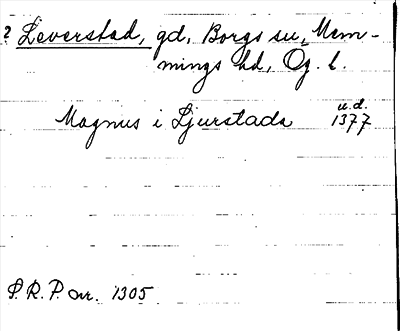 ? Leverstad, gd, Borgs sn, Mem-
mings hd, Ög. l.
Magnus i Ljurstada u.d. 1377
S.R.P. nr. 1305